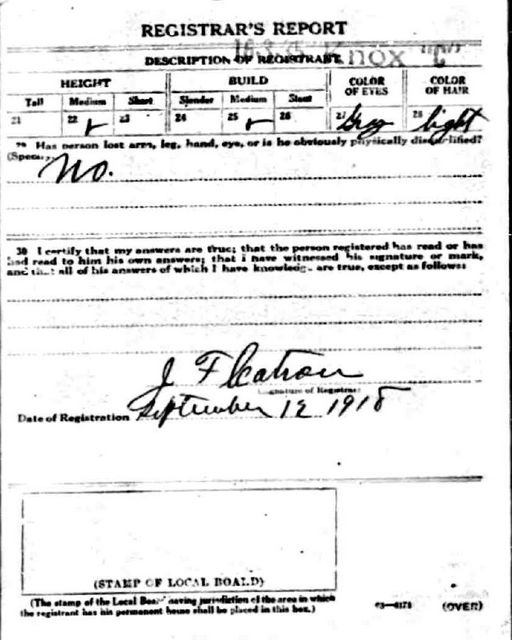 REGISTRAR'S REPORT
Knox "C"
DESCRIPTION OF REGISTRANT
HEIGHT BUILD COLOR OF EYES COLOR OF HAIR
Tall Medium Short Slender Medium Stout
21 22 ✓ 23 24 25 ✓ 26 27 Gray 28 light
29 Has person lost arm, leg, hand, eye, or is he obviously physically disqualified?
(Specify.)
No.
30 I certify that my answers are true; that the person registered has read or has
had read to him his own answers; that I have witnessed his signature or mark,
and that all of his answers of which I have knowledge are true, except as follows:
J F Catron
Signature of Registrar
Date of Registration September 12 1918
(STAMP OF LOCAL BOARD)
(The stamp of the Local Board having jurisdiction of the area in which
the registrant has his permanent home shall be placed in this box.)
03—6171 (OVER)